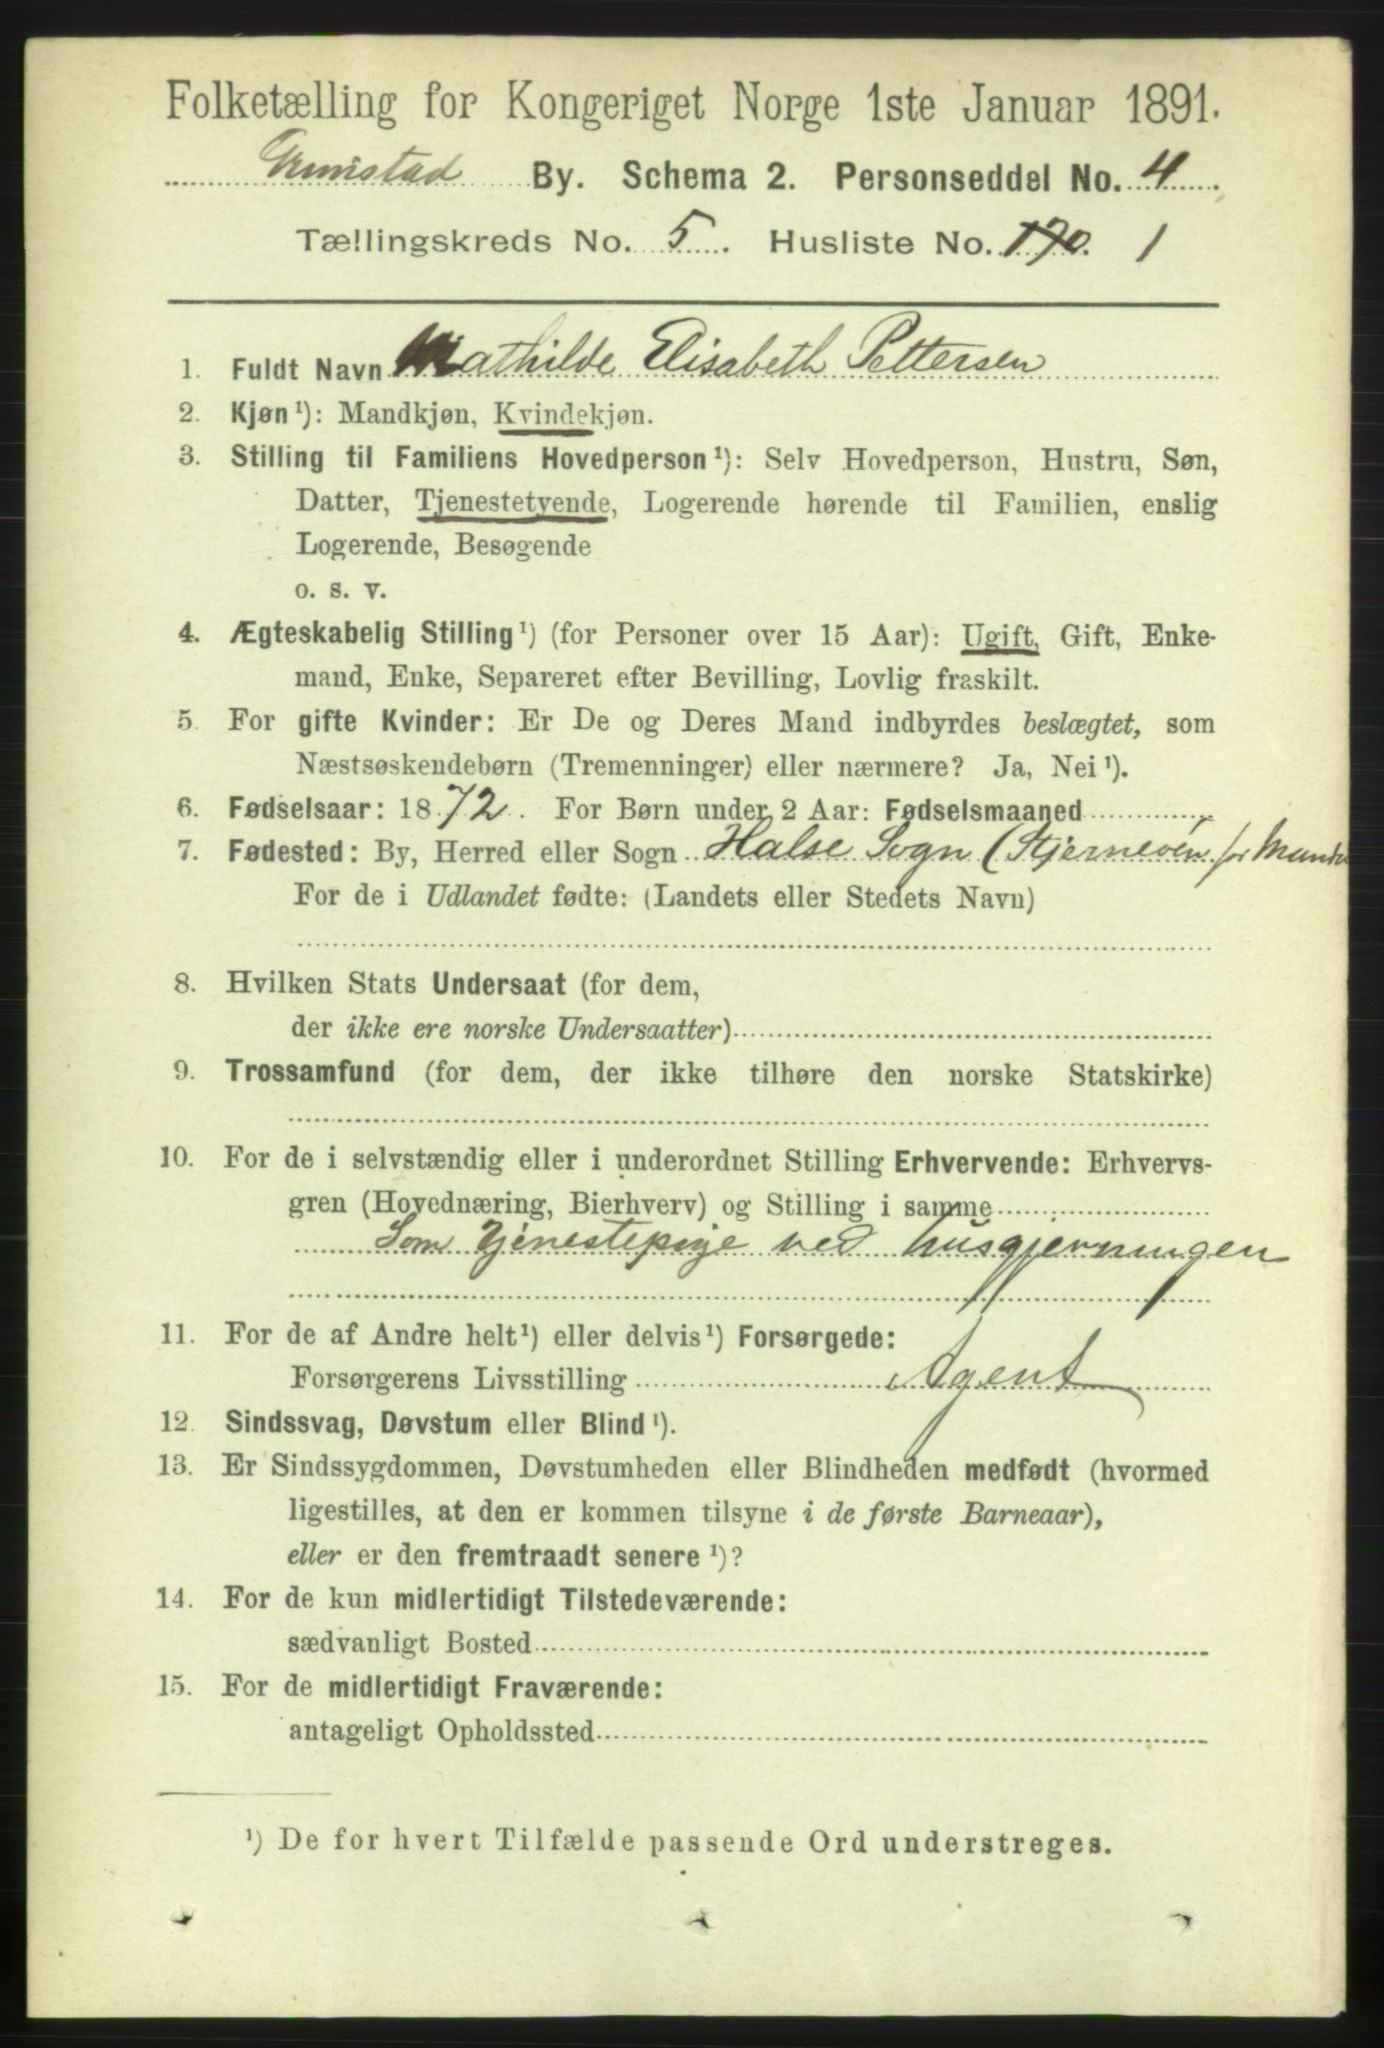 Folketælling for Kongeriget Norge 1ste Januar 1891.
Grimstad By. Schema 2. Personseddel No. 4
Tællingskreds No. 5. Husliste No. 170. 1
1. Fuldt Navn Mathilde Elisabeth Pettersen
2. Kjøn ¹): Mandkjøn, Kvindekjøn.
3. Stilling til Familiens Hovedperson ¹): Selv Hovedperson, Hustru, Søn,
Datter, Tjenestetyende, Logerende hørende til Familien, enslig
Logerende, Besøgende
o. s. v.
4. Ægteskabelig Stilling ¹) (for Personer over 15 Aar): Ugift, Gift, Enke-
mand, Enke, Separeret efter Bevilling, Lovlig fraskilt.
5. For gifte Kvinder: Er De og Deres Mand indbyrdes beslægtet, som
Næstsøskendebørn (Tremenninger) eller nærmere? Ja, Nei ¹).
6. Fødselsaar: 1872. For Børn under 2 Aar: Fødselsmaaned
7. Fødested: By, Herred eller Sogn Halse Sogn (Stjerneøen for
For de i Udlandet fødte: (Landets eller Stedets Navn)
8. Hvilken Stats Undersaat (for dem,
der ikke ere norske Undersaatter)
9. Trossamfund (for dem, der ikke tilhøre den norske Statskirke)
10. For de i selvstændig eller i underordnet Stilling Erhvervende: Erhvervs-
gren (Hovednæring, Bierhverv) og Stilling i samme
Som Tjenestepige ved husgjerningen
11. For de af Andre helt ¹) eller delvis ¹) Forsørgede:
Forsørgerens Livsstilling Agent
12. Sindssvag, Døvstum eller Blind ¹).
13. Er Sindssygdommen, Døvstumheden eller Blindheden medfødt (hvormed
ligestilles, at den er kommen tilsyne i de første Barneaar),
eller er den fremtraadt senere ¹)?
14. For de kun midlertidigt Tilstedeværende:
sædvanligt Bosted
15. For de midlertidigt Fraværende:
antageligt Opholdssted
¹) De for hvert Tilfælde passende Ord understreges.